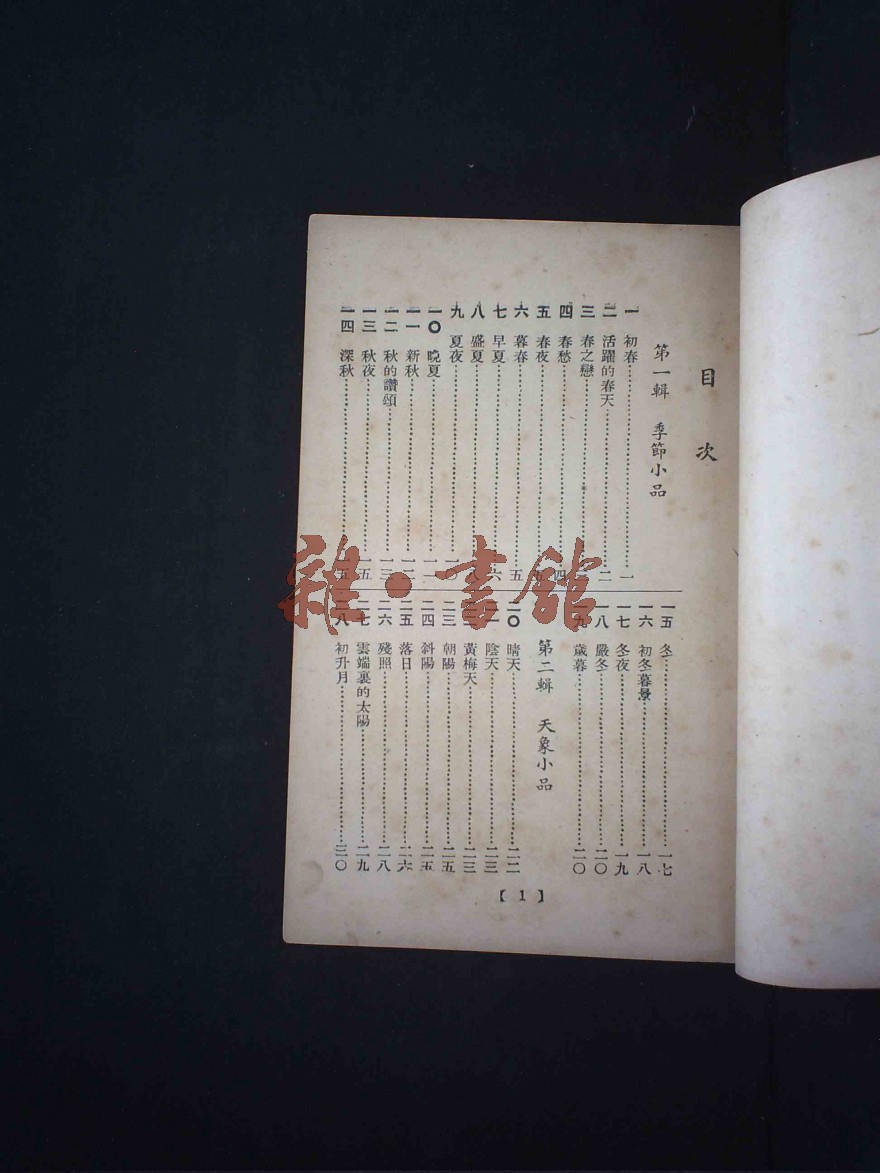 目次
第一輯 季節小品
一 初春 一
二 活躍的春天 二
三 春之戀
四 春愁 四
五 春夜
六 暮春 五
七 早夏 六
八 盛夏 八
九 夏夜 一〇
一〇 晚夏 一一
一一 新秋 一二
一二 秋的讚頌 一三
一三 秋夜 一五
一四 深秋 一五
一五 冬 一七
一六 初冬暮景 一八
一七 冬夜 一九
一八 嚴冬 二〇
一九 歲暮 二〇
第二輯 天象小品
二〇 晴天 二二
二一 陰天 二三
二二 黃梅天 二三
二三 朝陽 二五
二四 斜陽 二五
二五 落日 二六
二六 殘照 二八
二七 雲端裏的太陽 二九
二八 初升月 三〇
【1】
雜·書館